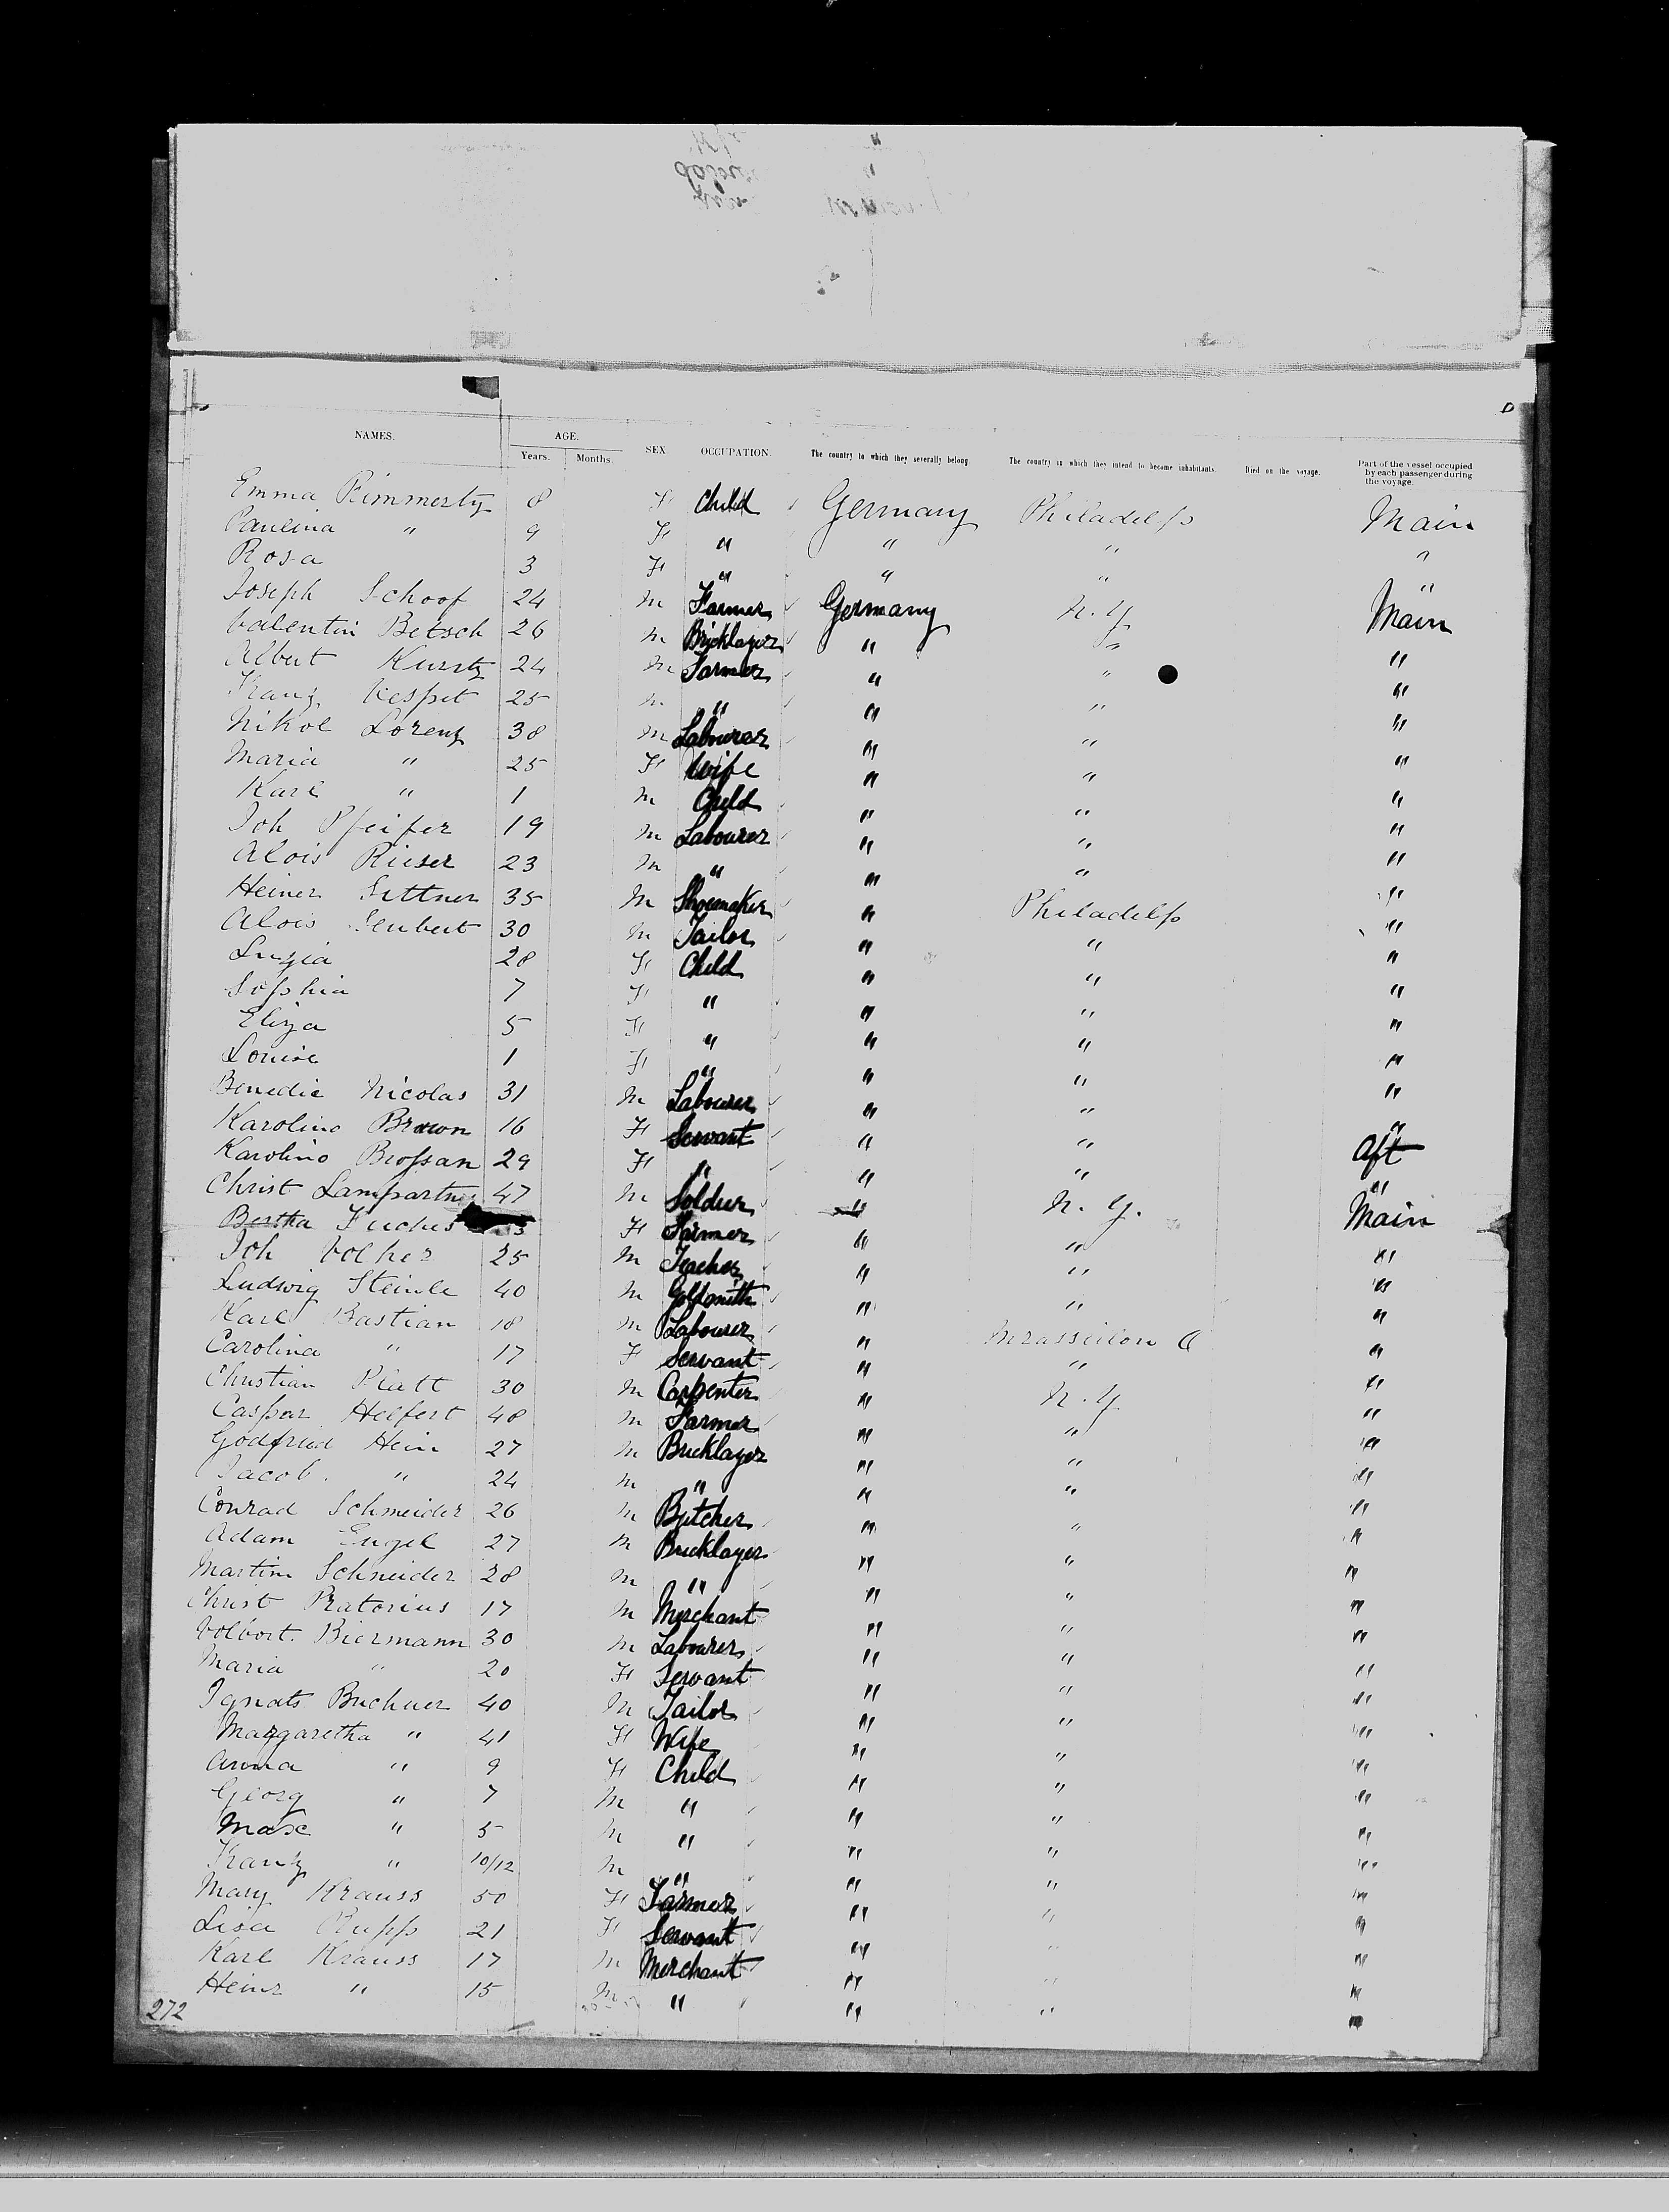 D
NAMES. AGE. SEX OCCUPATION. The country to which they severally belong The country in which they intend to become inhabitants. Died on the voyage. Part of the vessel occupied by each passenger during the voyage.
Years. Months.
Emma Rimmerty 8 F Child Germany Philadelp Main
Paulina " 9 F " " " "
Rosa 3 F " " " "
Joseph Schoof 24 M Farmer Germany N.Y. Main
Valentin Betsch 26 M Bricklayer " " "
Albert Kurtz 24 M Farmer " " "
Franz Vespet 25 M " " " "
Nikol Lorenz 38 M Labourer " " "
Maria " 25 F Wife " " "
Karl " 1 M Child " " "
Joh Pfeifer 19 M Labourer " " "
Alois Rieser 23 M " " " "
Heiner Sittner 35 M Shoemaker " Philadelp "
Alois Seubert 30 M Tailor " " "
Luzia 28 F Child " " "
Sophia 7 F " " " "
Eliza 5 F " " " "
Louise 1 F " " " "
Benedic Nicolas 31 M Labourer " " "
Karolina Brown 16 F Servant " " Aft
Karolino Brossan 29 F " " " "
Christ Lampartner 47 M Soldier " N.Y. Main
Bertha Fuches F Farmer " " "
Joh Volker 25 M Teacher " " "
Ludwig Steinle 40 M Goldsmith " " "
Karl Bastian 18 M Labourer " Mrasseilon O "
Carolina " 17 F Servant " " "
Christian Platt 30 M Carpenter " N.Y. "
Caspar Helfert 48 M Farmer " " "
Godfried Hein 27 M Bricklayer " " "
Jacob. " 24 M " " " "
Conrad Schmeider 26 M Butcher " " "
Adam Engel 27 M Bricklayer " " "
Martin Schneider 28 M " " " "
Christ Pratorius 17 M Merchant " " "
Volbort. Biermann 30 M Labourer " " "
Maria " 20 F Servant " " "
Ignats Buchner 40 M Tailor " " "
Margaretha " 41 F Wife " " "
Anna " 9 F Child " " "
Georg " 7 M " " " "
Max " 5 M " " " "
Franz " 10/12 M " " " "
Mary Krauss 50 F Farmer " " "
Lisa Rupp 21 F Servant " " "
Karl Krauss 17 M Merchant " " "
Heinr " 15 M " " " "
272